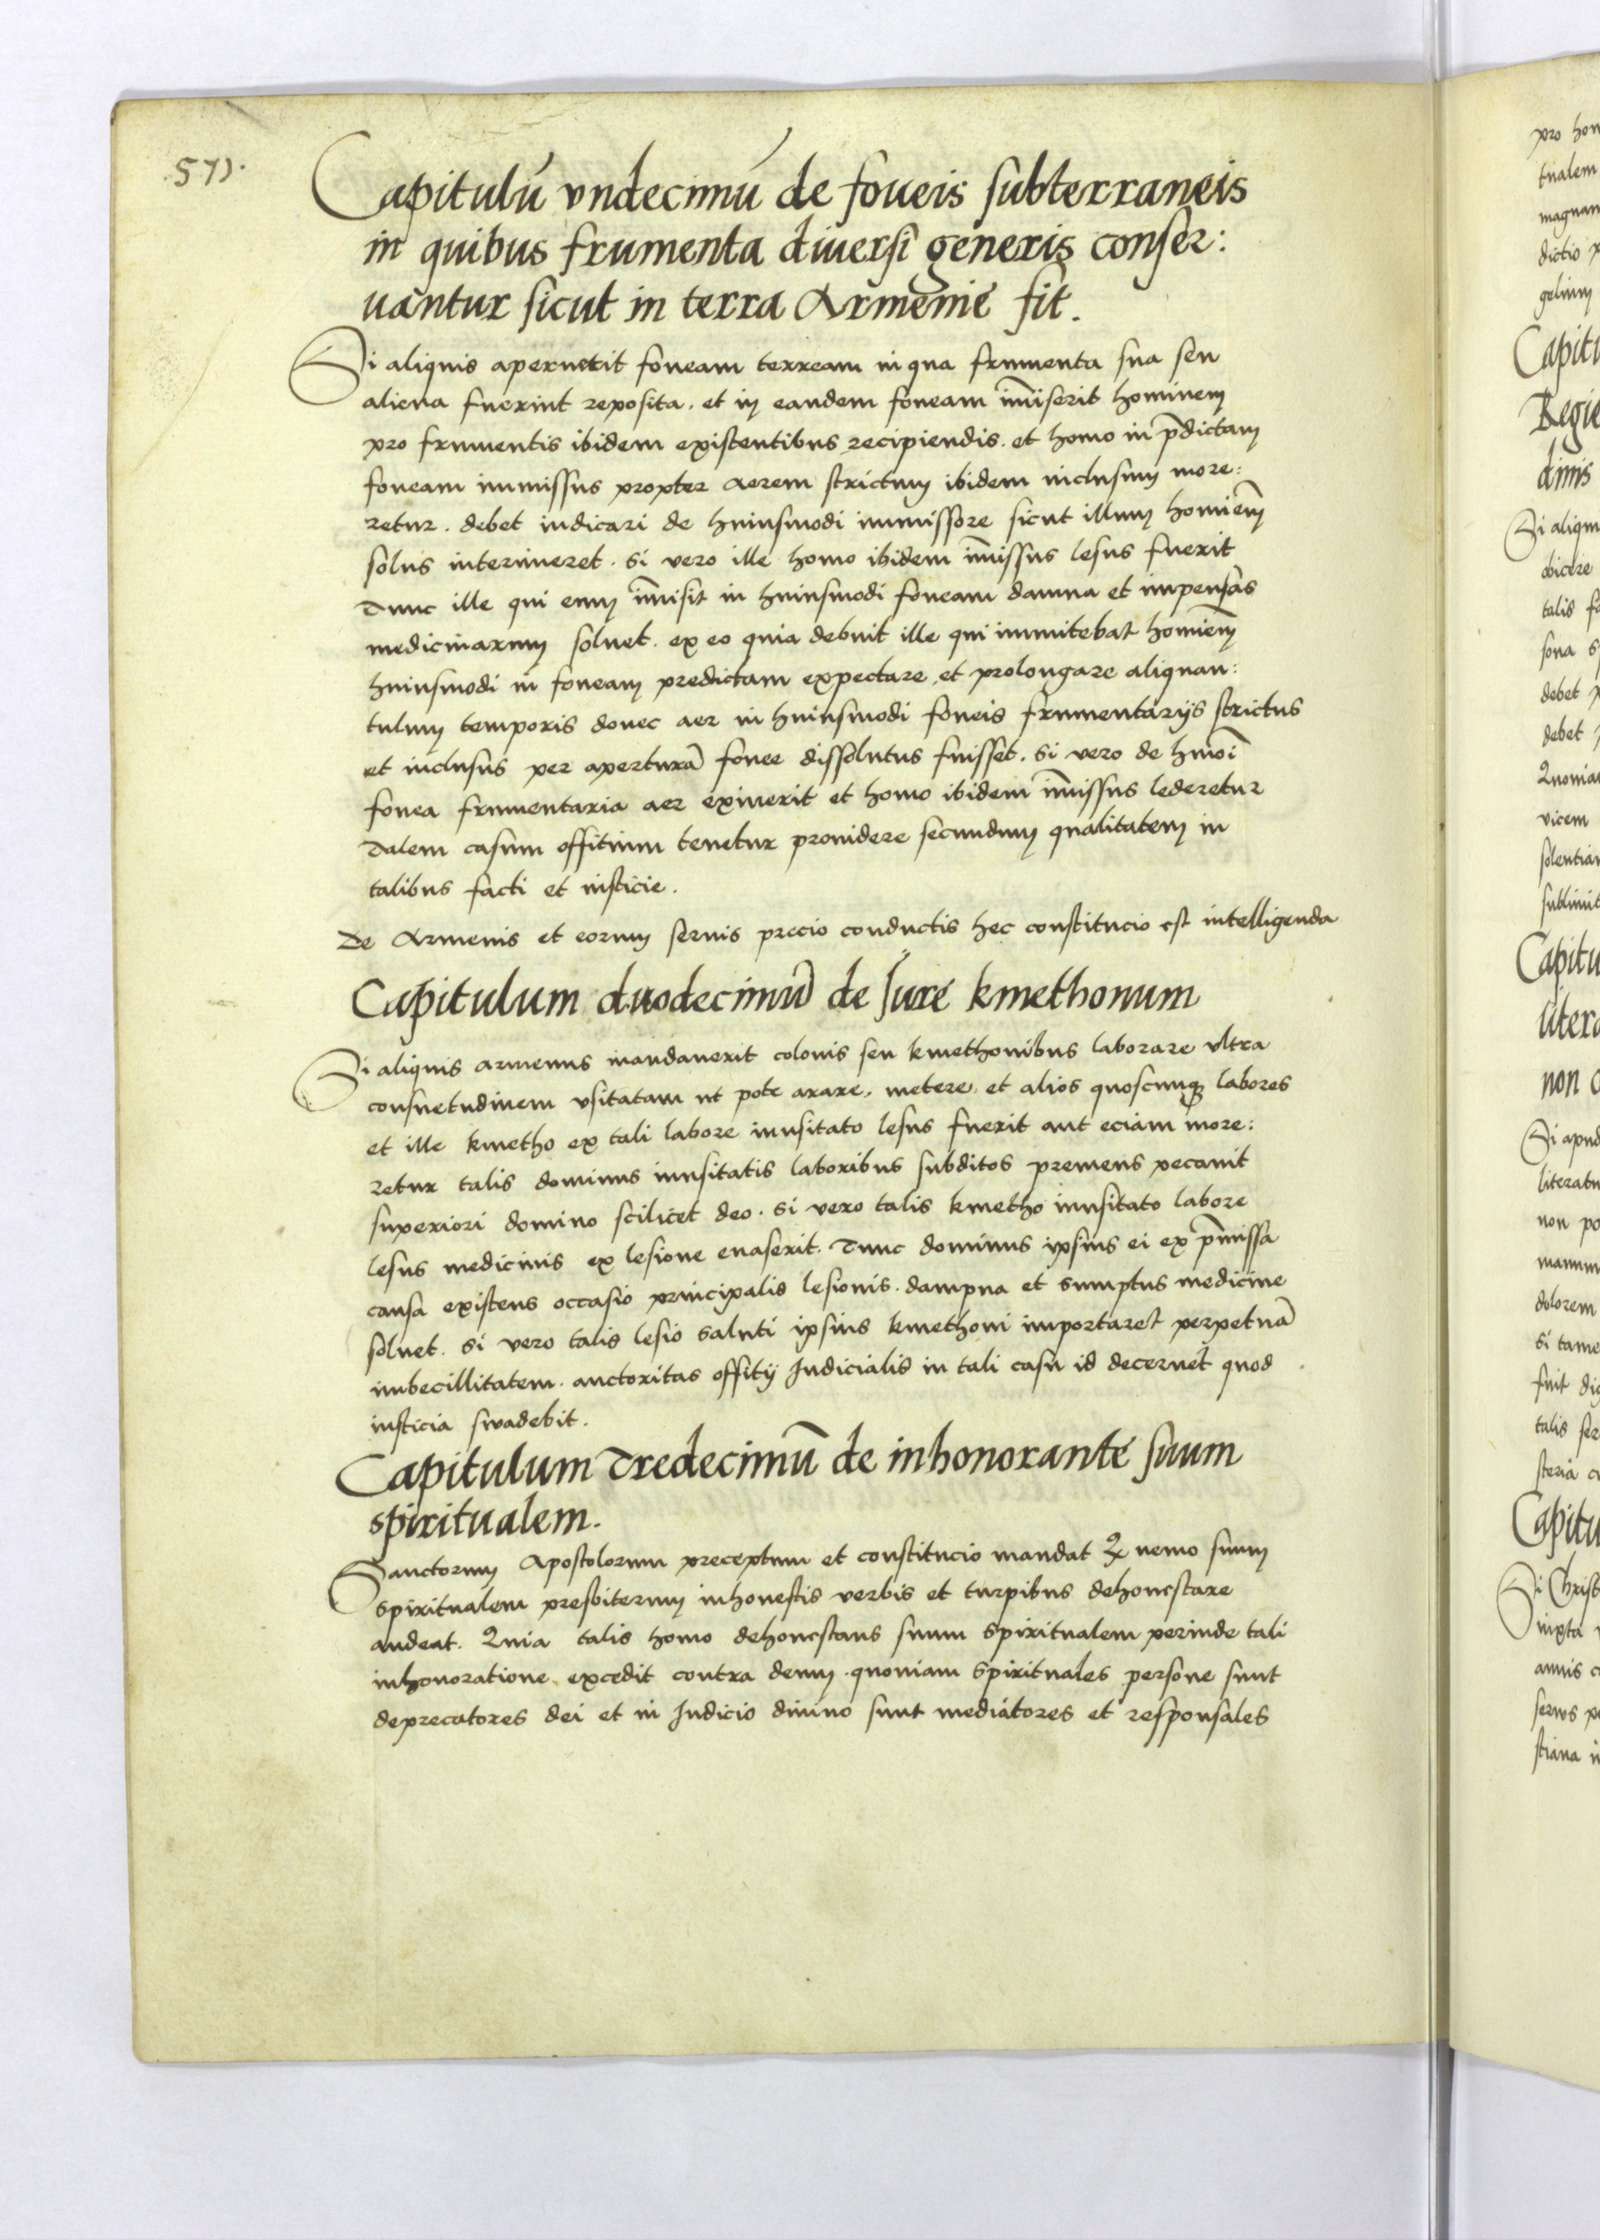 571.
Capitulū vndecimū de foueis subterraneis
in quibus frumenta diuersi generis conser:
uantur sicut in terra Armenie fit.
Si aliquis aperuerit foueam terream in qua frumenta sua seu
aliena fuerint reposita. et in eandem foueam im̄iserit hominem
pro frumentis ibidem existentibus recipiendis. et homo in p̄dictam
foueam immissus propter aerem strictum ibidem inclusum more:
retur. debet iudicari de huiusmodi immissore sicut illum homiēm
solus interimeret. si vero ille homo ibidem im̄issus lesus fuerit
Tunc ille qui eum im̄isit in huiusmodi foueam damna et impensas
medicinarum soluet. ex eo quia debuit ille qui immitebat homiēm
huiusmodi in foueam predictam expectare et prolongare aliquan:
tulum temporis donec aer in huiusmodi foueis frumentarijs strictus
et inclusus per aperturā fouee dissolutus fuisset. si vero de hmōi
fouea frumentaria aer exiuerit et homo ibidem im̄issus lederetur
Talem casum offitium tenetur prouidere secundum qualitatem in
talibus facti et iusticie.
De Armenis et eorum seruis precio conductis hec constitucio est intelligenda
Capitulum duodecimū de Jure kmethonum
Si aliquis armenus mandauerit colonis seu kmethonibus laborare vltra
consuetudinem vsitatam ut pote arare, metere et alios quoscunqꝫ labores
et ille kmetho ex tali labore inusitato lesus fuerit aut eciam more:
retur talis dominus inusitatis laboribus subditos premens pecauit
superiori domino scilicet deo. si vero talis kmetho inusitato labore
lesus medicinis ex lesione euaserit. Tunc dominus ipsius ei ex p̄missa
causa existens occasio principalis lesionis. dampna et sumptus medicine
soluet. si vero talis lesio saluti ipsius kmethoni importaret perpetuā
imbecillitatem. auctoritas offitij Judicialis in tali casu id decernet quod
iusticia swadebit.
Capitulum Tredecimū de inhonorante suum
spiritualem.
Sanctorum Apostolorum preceptum et constitucio mandat Ꝙ nemo suum
spiritualem presbiterum inhonestis verbis et turpibus dehonestare
audeat. Quia talis homo dehonestans suum spiritualem perinde tali
inhonoratione excedit contra deum. quoniam spirituales persone sunt
deprecatores dei et in Judicio diuino sunt mediatores et responsales